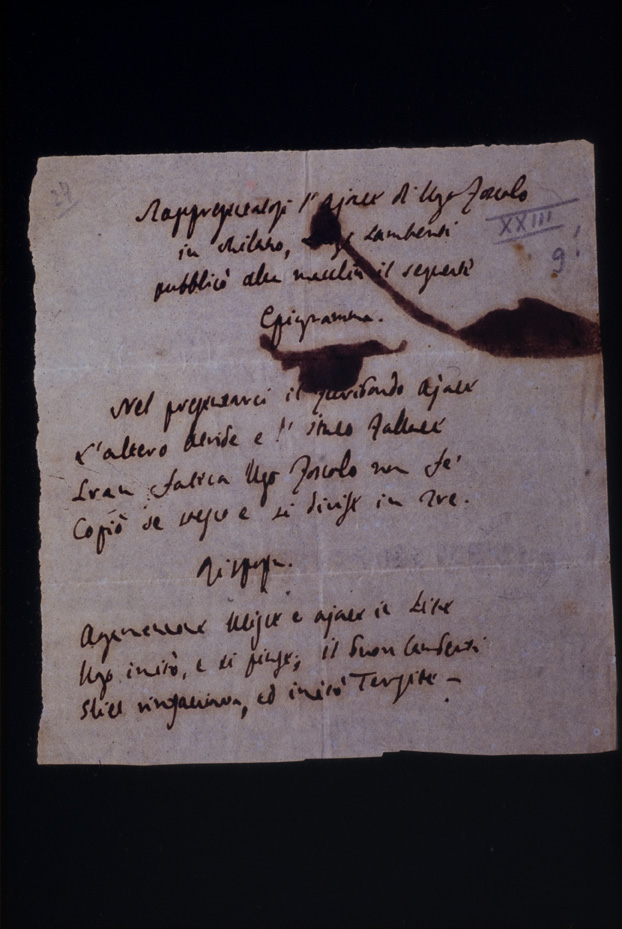 24
Rappresentatosi l'Ajace di Ugo Foscolo
XXIII
in Milano, Lamberti
9
pubblicò alla macchia il seguente
Epigramma.
Nel presentarci il furibondo Ajace
L'altero Atride e l'Itaco fallace
Gran fatica Ugo Foscolo non fe'
Copiò se stesso e si divise in tre.
Risposta.
Agamennone Ulisse e Ajace in lite
Ugo imitò, e si pinse; il buon Lamberti
ed imitò Tersite –